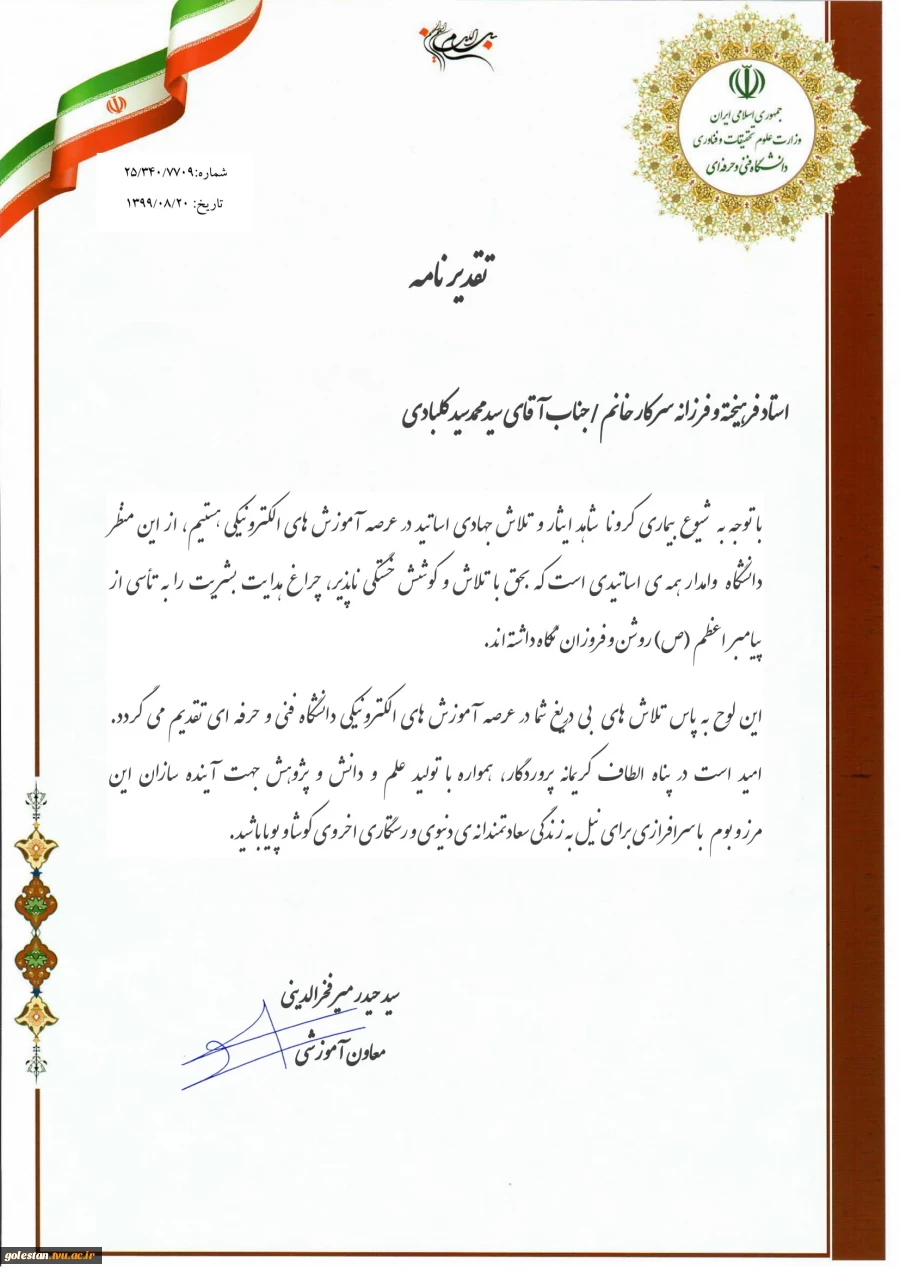 بسم الله الرحمن الرحیم
جمهوری اسلامی ایران
وزارت علوم تحقیقات و فناوری
دانشگاه فنی و حرفه ای
شماره:۲۵/۳۴۰/۷۷۰۹
تاریخ: ۱۳۹۹/۰۸/۲۰
تقدیر نامه
استاد فرهیخته و فرزانه سرکار خانم / جناب آقای سید محمد سید کلبادی
با توجه به شیوع بیماری کرونا شاهد ایثار و تلاش جهادی اساتید در عرصه آموزش های الکترونیکی هستیم، از این منظر
دانشگاه وامدار همه ی اساتیدی است که بحق با تلاش و کوشش خستگی ناپذیر، چراغ هدایت بشریت را به تأسی از
پیامبر اعظم (ص) روشن و فروزان نگاه داشته اند.
این لوح به پاس تلاش های بی دریغ شما در عرصه آموزش های الکترونیکی دانشگاه فنی و حرفه ای تقدیم می گردد.
امید است در پناه الطاف کریمانه پروردگار، همواره با تولید علم و دانش و پژوهش جهت آینده سازان این
مرز و بوم با سرافرازی برای نیل به زندگی سعادتمندانه ی دنیوی و رستگاری اخروی کوشا و پویا باشید.
سید حیدر میرفخرالدینی
معاون آموزشی
golestan.tvu.ac.ir